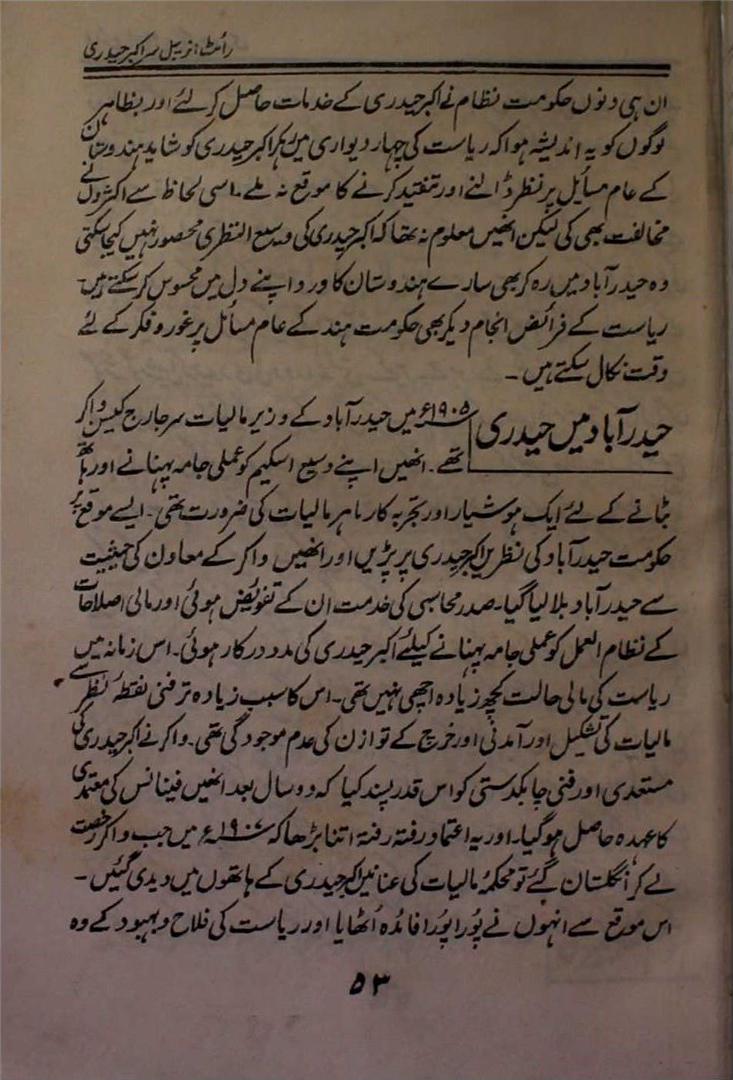 رائٹ آنریبل سر اکبر حیدری
ان ہی دنوں حکومت نظام نے اکبر حیدری کے خدمات حاصل کرلئے اور بظاہر
لوگوں کو یہ اندیشہ ہوا کہ ریاست کی چہار دیواری میں رہکر اکبر حیدری کو شاید ہندوستان
کے عام مسائل پر نظر ڈالنے اور تنقید کرنے کا موقع نہ ملے۔ اسی لحاظ سے اکثروں نے
مخالفت بھی کی لیکن انھیں معلوم نہ تھا کہ اکبر حیدری کی وسیع النظری محصور نہیں کیجاسکتی
وہ حیدرآباد میں رہ کر بھی سارے ہندوستان کا درد اپنے دل میں محسوس کرسکتے ہیں۔
ریاست کے فرائض انجام دیکر بھی حکومت ہند کے عام مسائل پر غور و فکر کے لئے
وقت نکال سکتے ہیں۔
حیدرآباد میں حیدری
۱۹۰۵ء میں حیدرآباد کے وزیر مالیات سر جارج کیسن واکر
تھے۔ انھیں اپنے وسیع اسکیم کو عملی جامہ پہنانے اور ہاتھ
بٹانے کے لئے ایک ہوشیار اور تجربہ کار ماہر مالیات کی ضرورت تھی۔ ایسے موقع پر
حکومت حیدرآباد کی نظریں اکبر حیدری پر پڑیں اور انھیں واکر کے معاون کی حیثیت
سے حیدرآباد بلا لیا گیا۔ صدر محاسبی کی خدمت ان کے تفویض ہوئی اور مالی اصلاحات
کے نظام العمل کو عملی جامہ پہنانے کیلئے اکبر حیدری کی مدد درکار ہوئی۔ اس زمانہ میں
ریاست کی مالی حالت کچھ زیادہ اچھی نہیں تھی۔ اس کا سبب زیادہ تر فنی نقطۂ نظر سے
مالیات کی تشکیل اور آمدنی اور خرچ کے توازن کی عدم موجودگی تھی۔ واکر نے اکبر حیدری کی
مستعدی اور فنی چابکدستی کو اس قدر پسند کیا کہ دو سال بعد انھیں فینانس کی معتمدی
کا عہدہ حاصل ہوگیا۔ اور یہ اعتماد رفتہ رفتہ اتنا بڑھا کہ ۱۹۰۷ء میں جب واکر رخصت
لے کر انگلستان گئے تو محکمۂ مالیات کی عنانیں اکبر حیدری کے ہاتھوں میں دیدی گئیں۔
اس موقع سے انہوں نے پورا پورا فائدہ اُٹھایا اور ریاست کی فلاح و بہبود کے وہ
۵۳